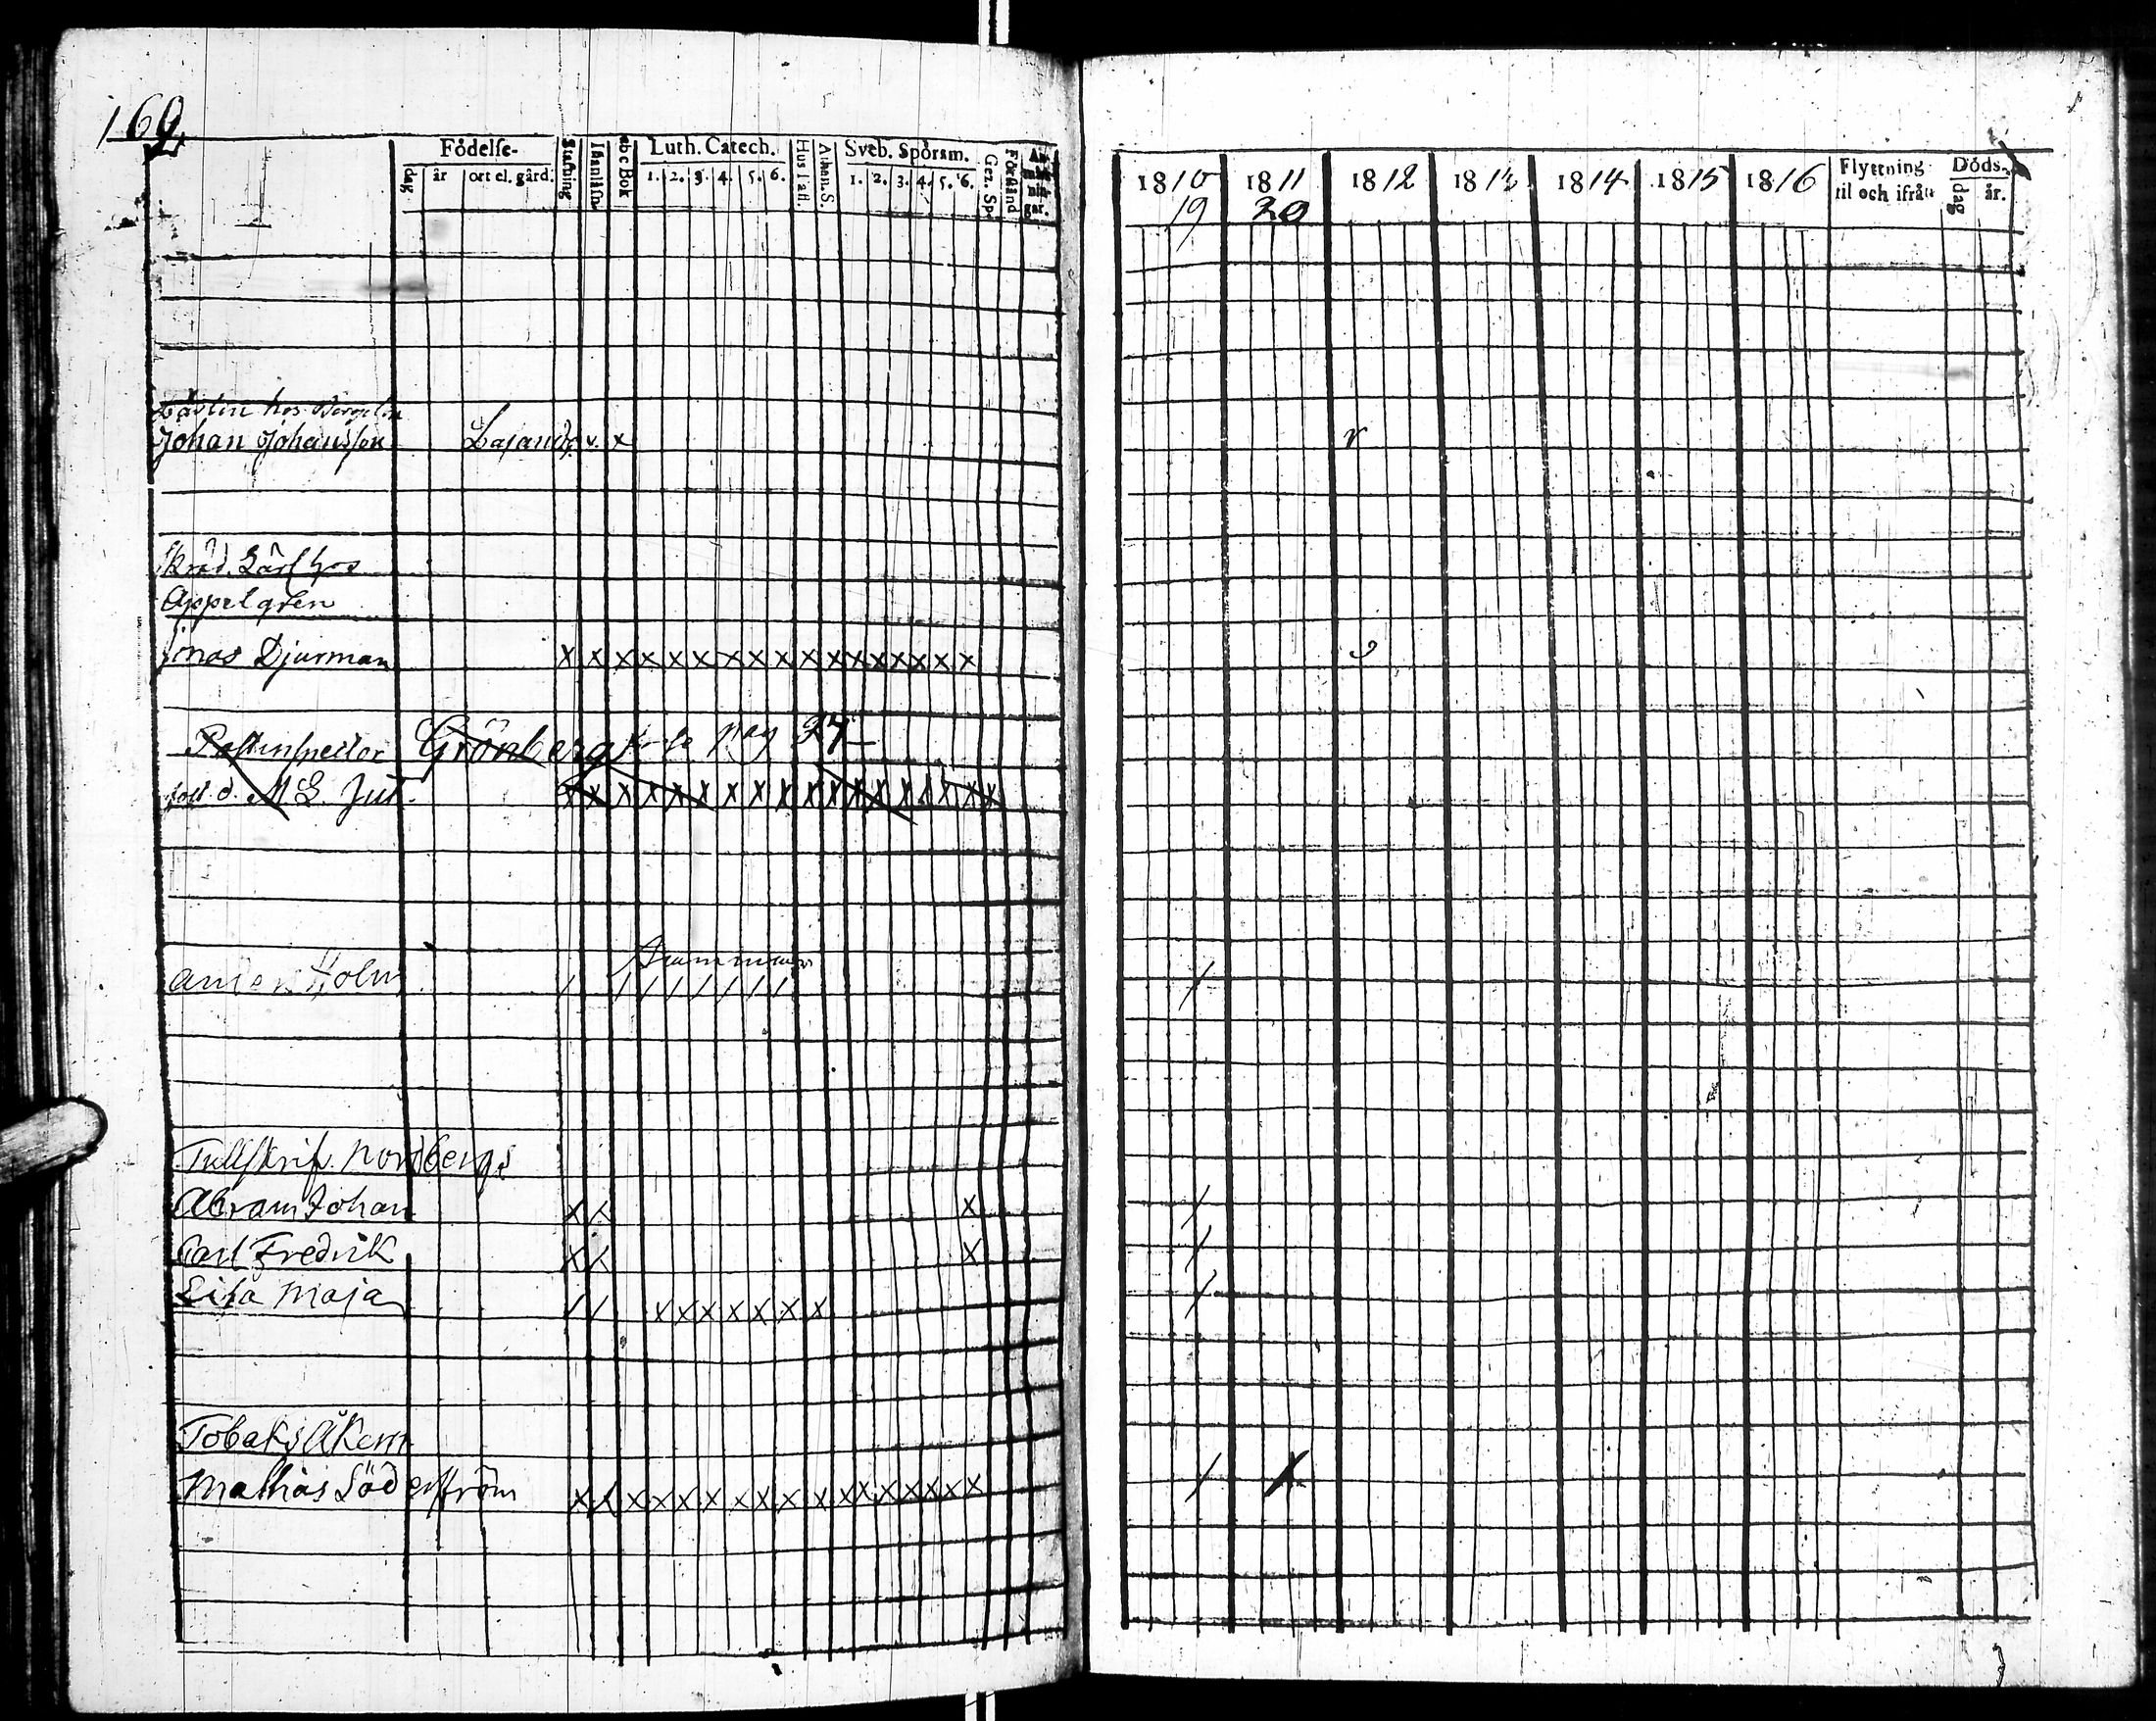 169
Födelse-
dag
år
ort el. gård.
Stafning
Iñanläsn
abc Bok
Luth. Catech.
1. 2. 3. 4. 5. 6.
Hustafl.
Athan. S.
Sveb. Spörsm.
1. 2. 3. 4. 5. 6.
Gez. Sp
Förstånd
Anmärkningar.
hos
Johan Johansson v. x
Skräd. Lärl hos
Appelgren
Jonas Djurman x x x x x x x x x x x x x x x x
Postinspector Grönberg se pag 24
fost. d. M L. Jut. x x x x x x x x x x x x x x x x
Holm / / / / / / / /
Tullskrif. Nordbergs
Abram Johan x x x
Carl Fredrik x x x
Lisa Maja / / x x x x x x x
Tobaks Åkern
Mathias Söderström x x x x x x x x x x x x x x x x
1810 1811 1812 1813 1814 1815 1816
19 20
Flyttning
til och ifrån
Döds-
dag
år.